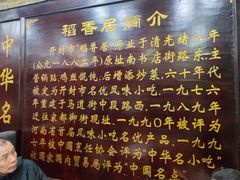 稻香居简介
开封市"稻香居"开业于清光绪八年
(公元一八八二年)原址南书店街路东,主
营锅贴,鸡丝馄饨。后迁址寺后街,六十年代
被定为开封市名优风味小吃,一九七六
年重建于马道街中段路西,一九八九
年迁址宋都御街现址,一九九〇年被评为
河南省首届风味小吃名优产品,一九九
七年被中国烹饪协会评为"中华名小吃"
被国家国内贸易局评为"中国名点"
中华名